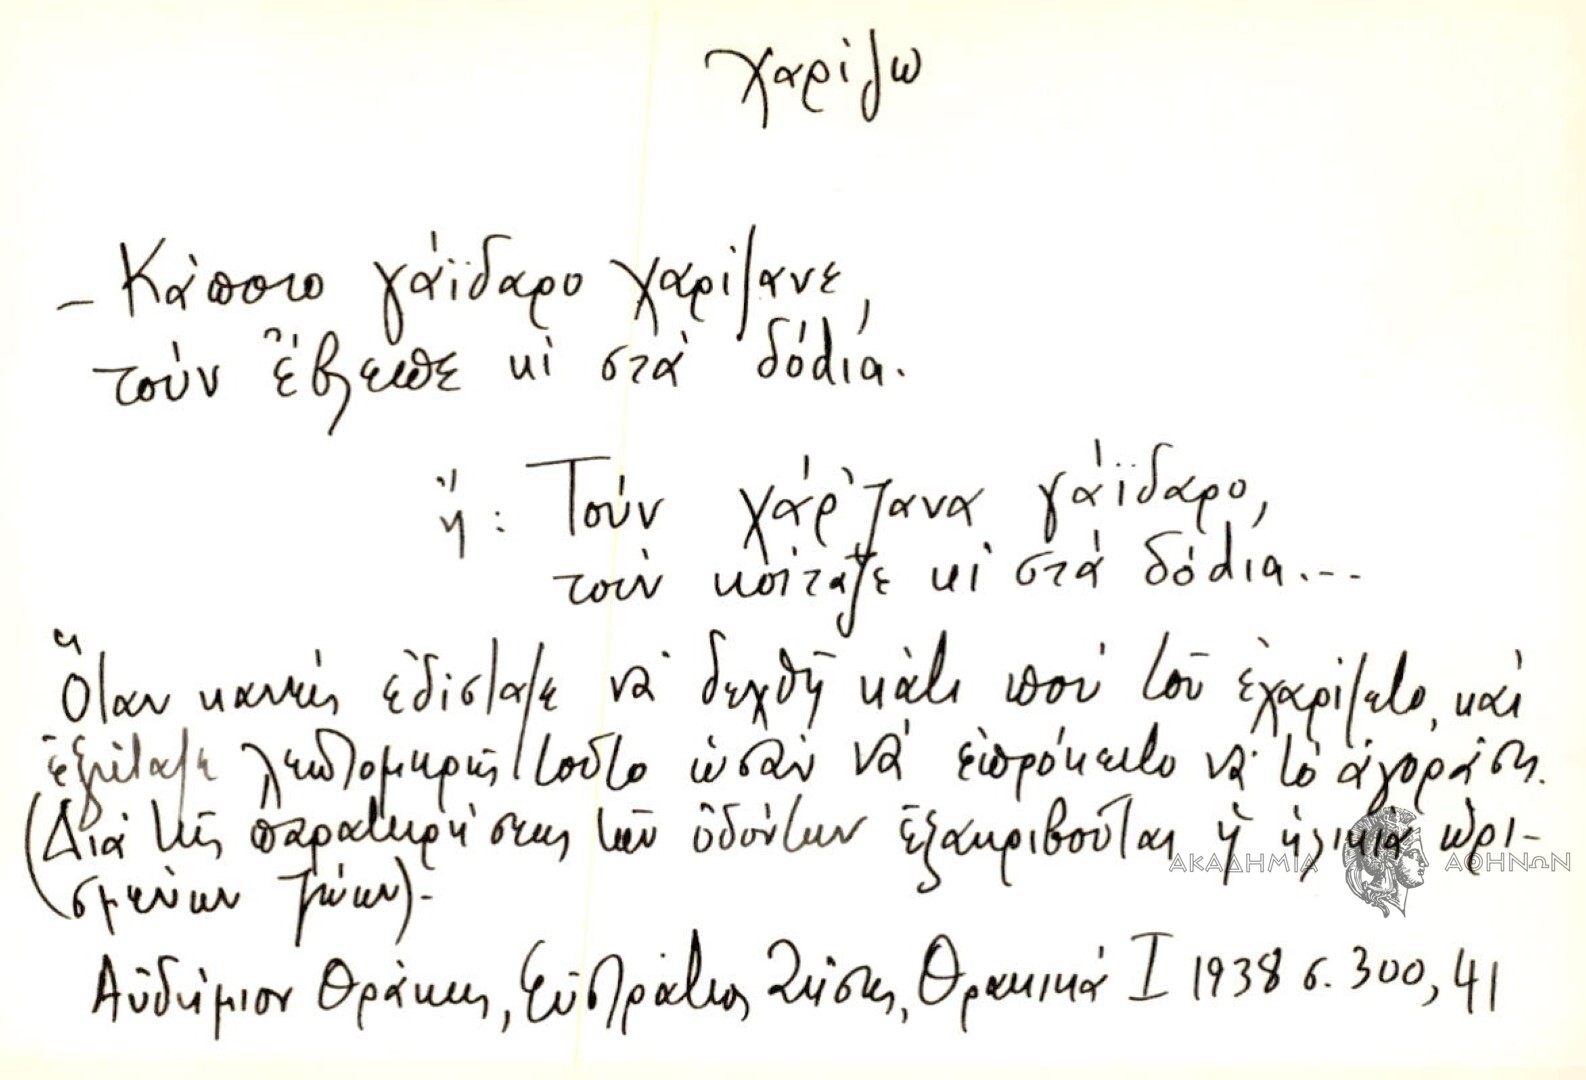 χαρίζω
– Κάποιο γάϊδαρο χαρίζανε,
τοὺν ἔβλεπε κὶ στὰ δόdια.
ἤ: Τοὺν χάρ'ζανα γάϊδαρο,
τοὺν κοίταζε κὶ στὰ δόdια...
Ὅταν κανεὶς ἐδίσταζε νὰ δεχθῇ κάτι ποὺ τοῦ ἐχαρίζετο, καὶ
ἐξήταζε λεπτομερῶς τοῦτο ὡσὰν νὰ ἐπρόκειτο νὰ τὸ ἀγοράσῃ.
(Διὰ τῆς παρατηρήσεως τῶν ὀδόντων ἐξακριβοῦται ἡ ἡλικία ὡρι-
σμένων ζώων).-
Αὐδήμιον Θράκης, Εὐστράτιος Ζήσης, Θρακικά Ι 1938 σ. 300, 41
ΑΚΑΔΗΜΙΑ ΑΘΗΝΩΝ